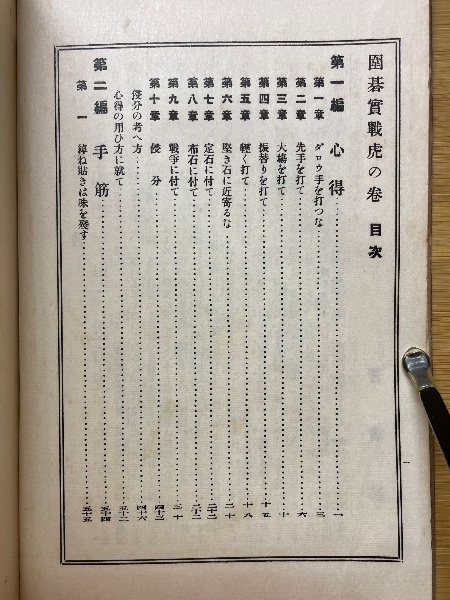 圍碁實戰虎の卷 目次
第一編 心得 一
第一章 ダロウ手を打つな 三
第二章 先手を打て 六
第三章 大場を打て 十
第四章 振替りを打て 十五
第五章 輕く打て 十八
第六章 堅き石に近寄るな 二十
第七章 定石に付て 二十二
第八章 布石に付て 二十三
第九章 戰爭に付て 三十
第十章 侵分 四十三
侵分の考へ方 四十六
心得の用ひ方に就て 五十二
第二編 手筋 五十四
第一 ね貼きは味を殘す 五十五
一